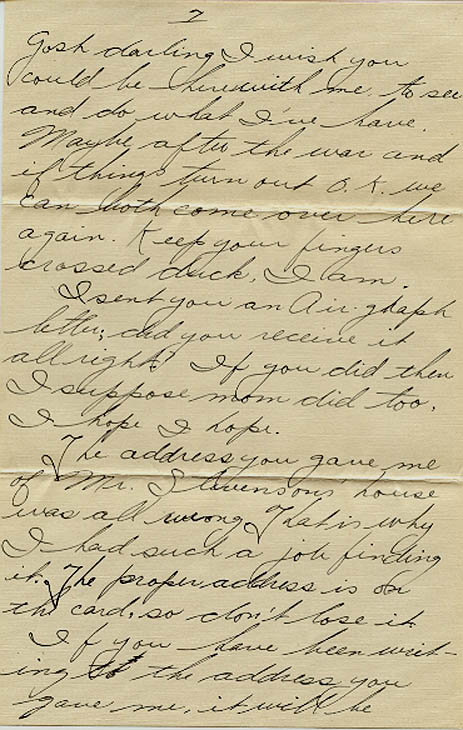 7
Gosh darling I wish you
could be here with me, to see
and do what I've have.
Maybe after the war and
if things turn out O.K. we
can both come over here
again. Keep your fingers
crossed duck, I am.
I sent you an Air-graph
letter; did you receive it
all right? If you did then
I suppose mom did too.
I hope I hope.
The address you gave me
of Mr. house
was all wrong, That is why
I had such a job finding
it. The proper address is on
the card, so don't lose it.
If you have been writ-
ing to the address you
gave me, it will be